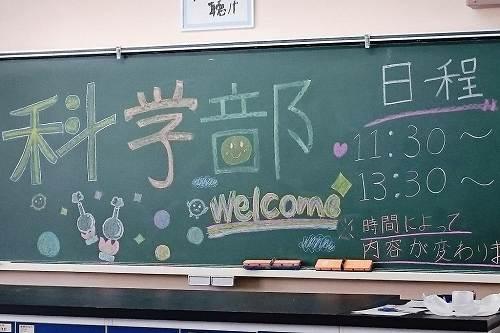 聴け
科学部
Welcome
日程
11:30～
13:30～
※時間によって
内容が変わりま